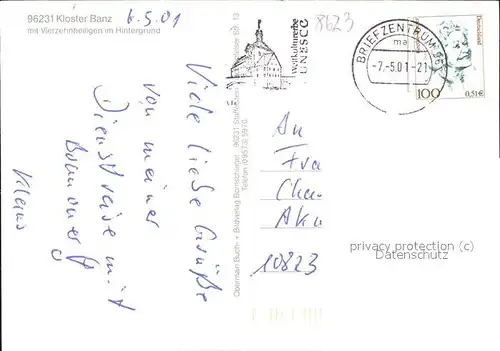 96231 Kloster Banz
mit Vierzehnheiligen im Hintergrund
6.5.01
Viele liebe Grüße
von meiner
Dienstreise mit
Klaus
Obermain Buch- + Bildverlag Bornschlegel 96231 Staffelstein
Telefon (09573) 5970
Weltkulturerbe
UNESCO
8623
BRIEFZENTRUM 96
ma
-7.-5.01-21
Deutschland
100
0,51€
An
Frau
10823
privacy protection (c)
Datenschutz